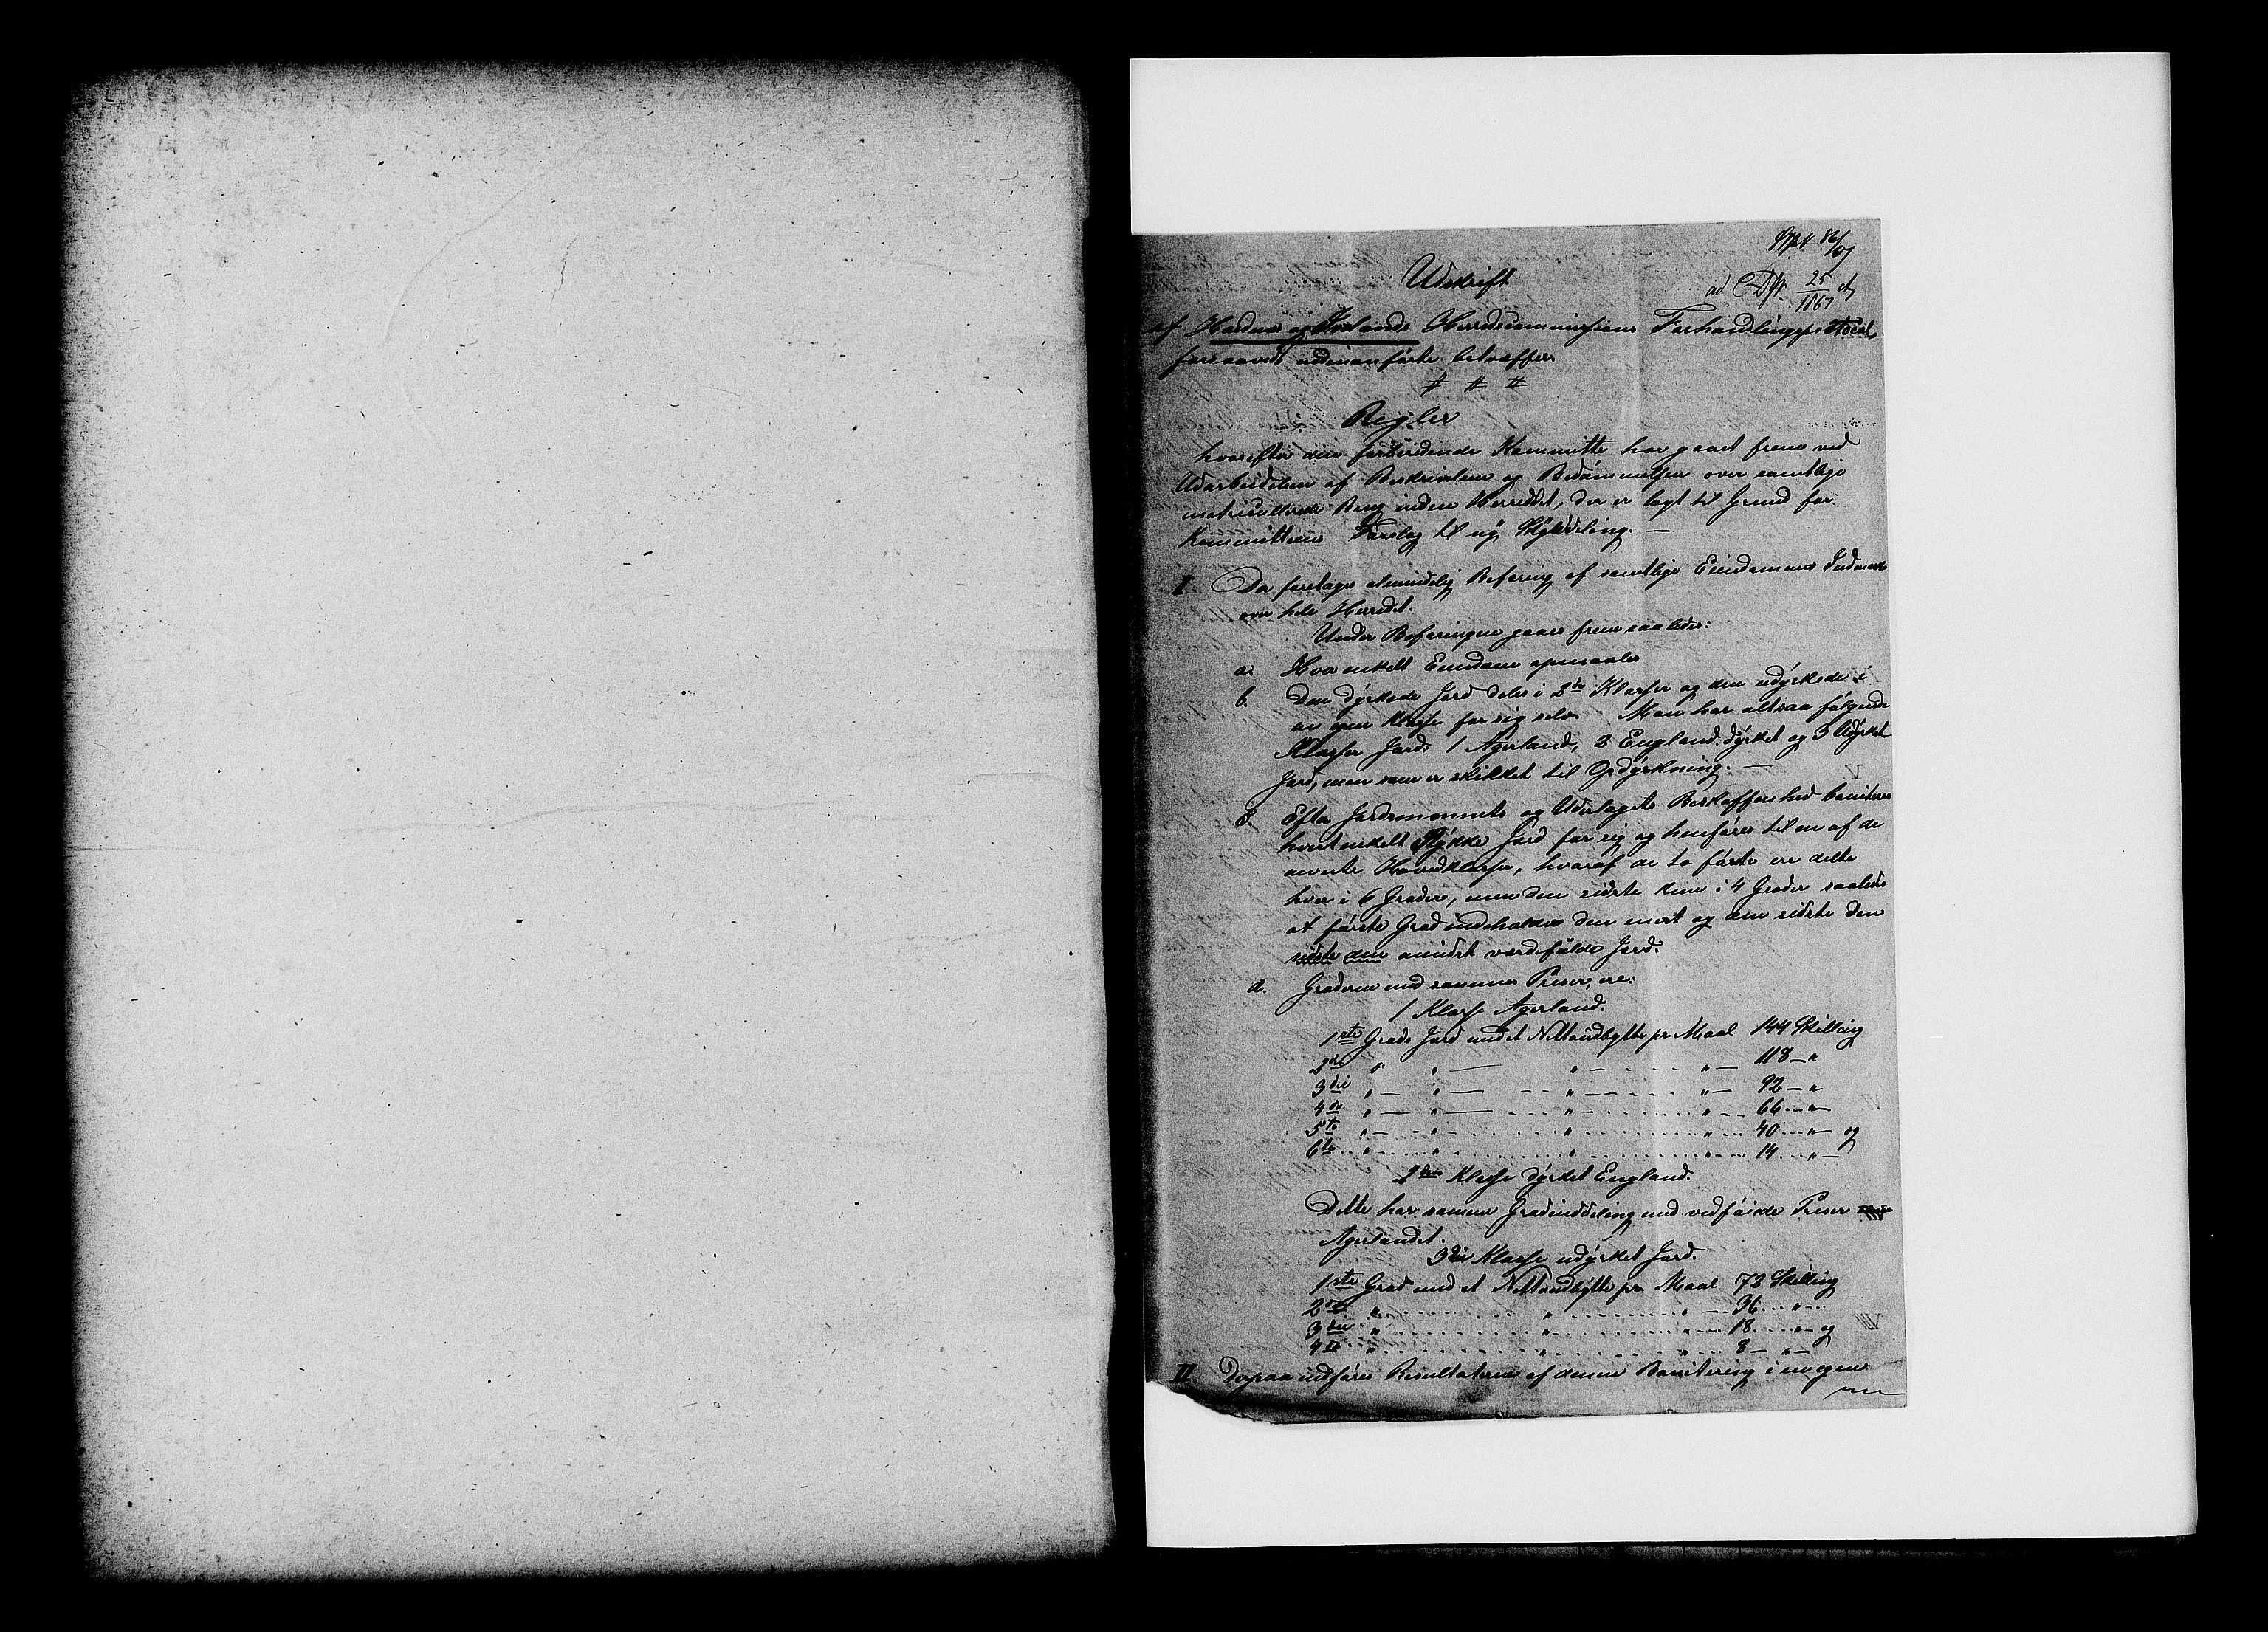 86/67
Udskrift
ad 25/1867
af Hordnes og Ivelands Herredscommissions Forhandlingsprotocol
forsaavidt nedenanførte betræffer.
# # #
Regler
hvorefter den forberedende Kommitte har gaaet frem ved
Udarbeidelsen af Beskrivelsen og Bedømmelsen over samtlige
matriculerede Brug inden Herredet, der er lagt til Grund for
Kommitteens Forslag til ny Skylddeling. —
I. Der foretages almindelig Befaring af samtlige Eiendommes Indmark
over hele Herredet.
Under Befaringen gaaes frem saaledes:
a. Hver enkelt Eiendom opmaales
b. Den dyrkede Jord deles i 2de Klasser og den udyrkede i
en egen Klasse for sig selv. Man har altsaa følgende
Klasser Jord: 1 Agerland, 2 England dyrket og 3 Udyrket
Jord, men som er skikket til Opdyrkning. —
c. Efter Jordsmonnets og Underlagets Beskaffenhed boniteres
hvert enkelt Stykke Jord for sig og henføres til en af de
nevnte Hovedklasser, hvoraf de to første ere delte
hver i 6 Grader, men den sidste kun i 4 Grader saaledes
at første Grad indeholder den mest og den sidste den
sidste den mindst værdifulde Jord.
d. Graderne med sammes Priser, ere:
1 Klasse Agerland.
1ste Grads Jord med et Nettoudbytte pr Maal 144 Skilling
2den " " — " — " — 118 — "
3die " — " — " — " — 92 — "
4de " — " — " — " — 66 — " —
5te " — " — " — " — 40 — " — og
6te " — " — " — " — 14 — " —
2den Klasse dyrket England.
Dette har samme Gradinddeling med vedføiede Priser som
Agerlandet.
3die Klasse udyrket Jord.
1ste Grad med et Nettoudbytte pr Maal 72 Skilling
2den " " " — 36 — " —
3die " " " — 18 — " — og
4de " " " — 8 — " —
II. Derpaa indføres Resultaterne af denne Bonitering i en egen